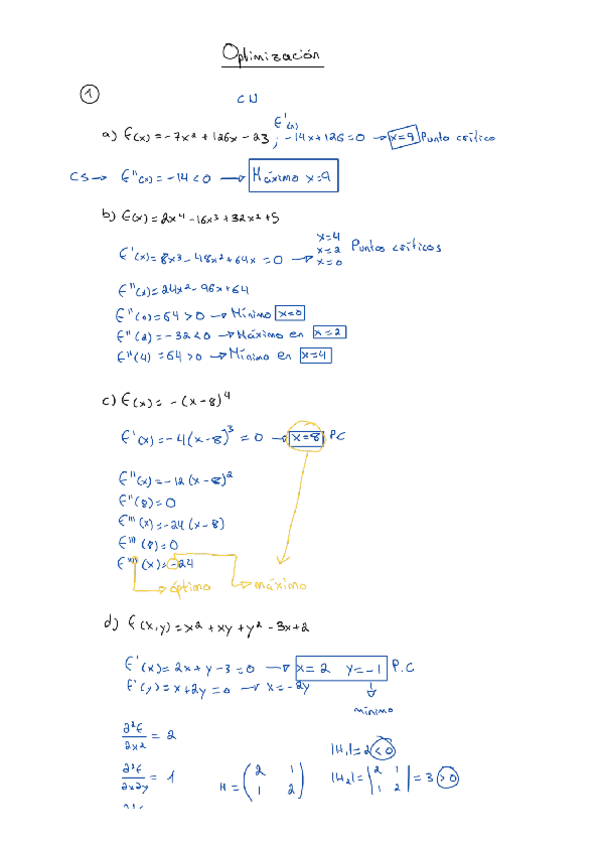 Optimización
①
CN
a) f(x) = -7x² + 126x - 23 ; f'(x) -14x + 126 = 0 → x=9 Punto crítico
CS → f''(x) = -14 < 0 → Máximo x=9
b) f(x) = 2x⁴ - 16x³ + 32x² + 5
f'(x) = 8x³ - 48x² + 64x = 0 → x=4 x=2 x=0 Puntos críticos
f''(x) = 24x² - 96x + 64
f''(0) = 64 > 0 → Mínimo x=0
f''(2) = -32 < 0 → Máximo en x=2
f''(4) = 64 > 0 → Mínimo en x=4
c) f(x) = -(x-8)⁴
f'(x) = -4(x-8)³ = 0 → x=8 PC
f''(x) = -12(x-8)²
f''(8) = 0
f'''(x) = -24(x-8)
f'''(8) = 0
f''''(x) = -24
→ óptimo → máximo
d) f(x,y) = x² + xy + y² - 3x + 2
f'(x) = 2x + y - 3 = 0 → x=2 y=-1 P.C
f'(y) = x + 2y = 0 → x = -2y
mínimo
∂²f/∂x² = 2
|H₁| = 2 < 0
∂²f/∂x∂y = 1 H = (2 1 1 2) |H₂| = |2 1 1 2| = 3 > 0